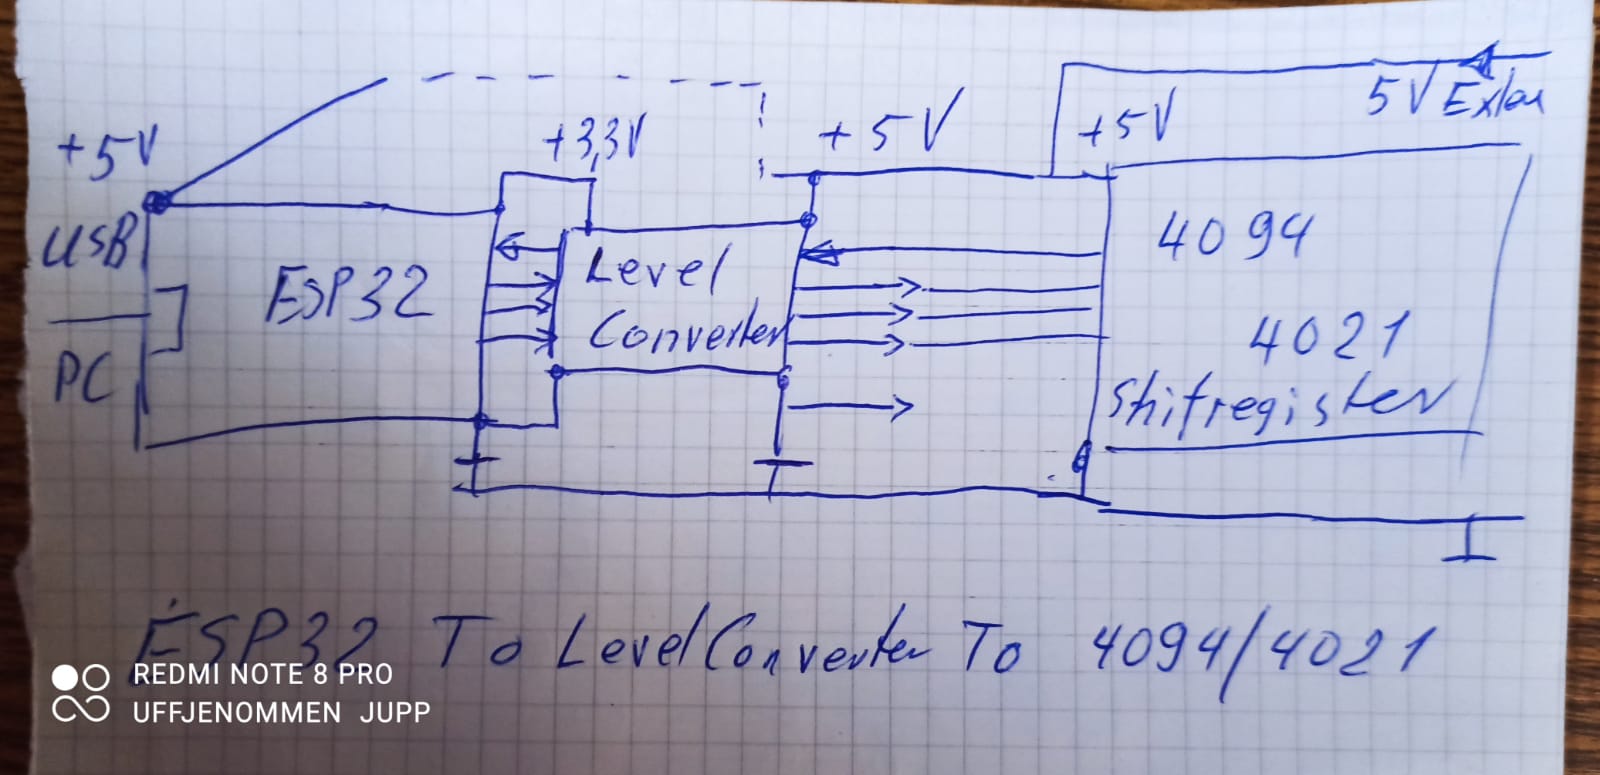 5V Extern
+5V
+3,3V
+5V
+5V
USB
PC
ESP32
Level
Converter
4094
4021
Shifregister
ESP32 To Level Converter To 4094/4021
REDMI NOTE 8 PRO
UFFJENOMMEN JUPP